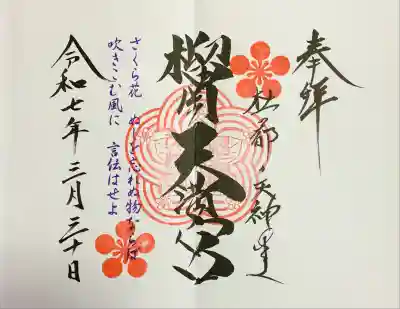 奉拝
杜都ノ天神
榴岡天満宮
さくら花 ぬしを忘れぬ物ならば
吹きこむ風に 言伝はせよ
令和七年三月三十日